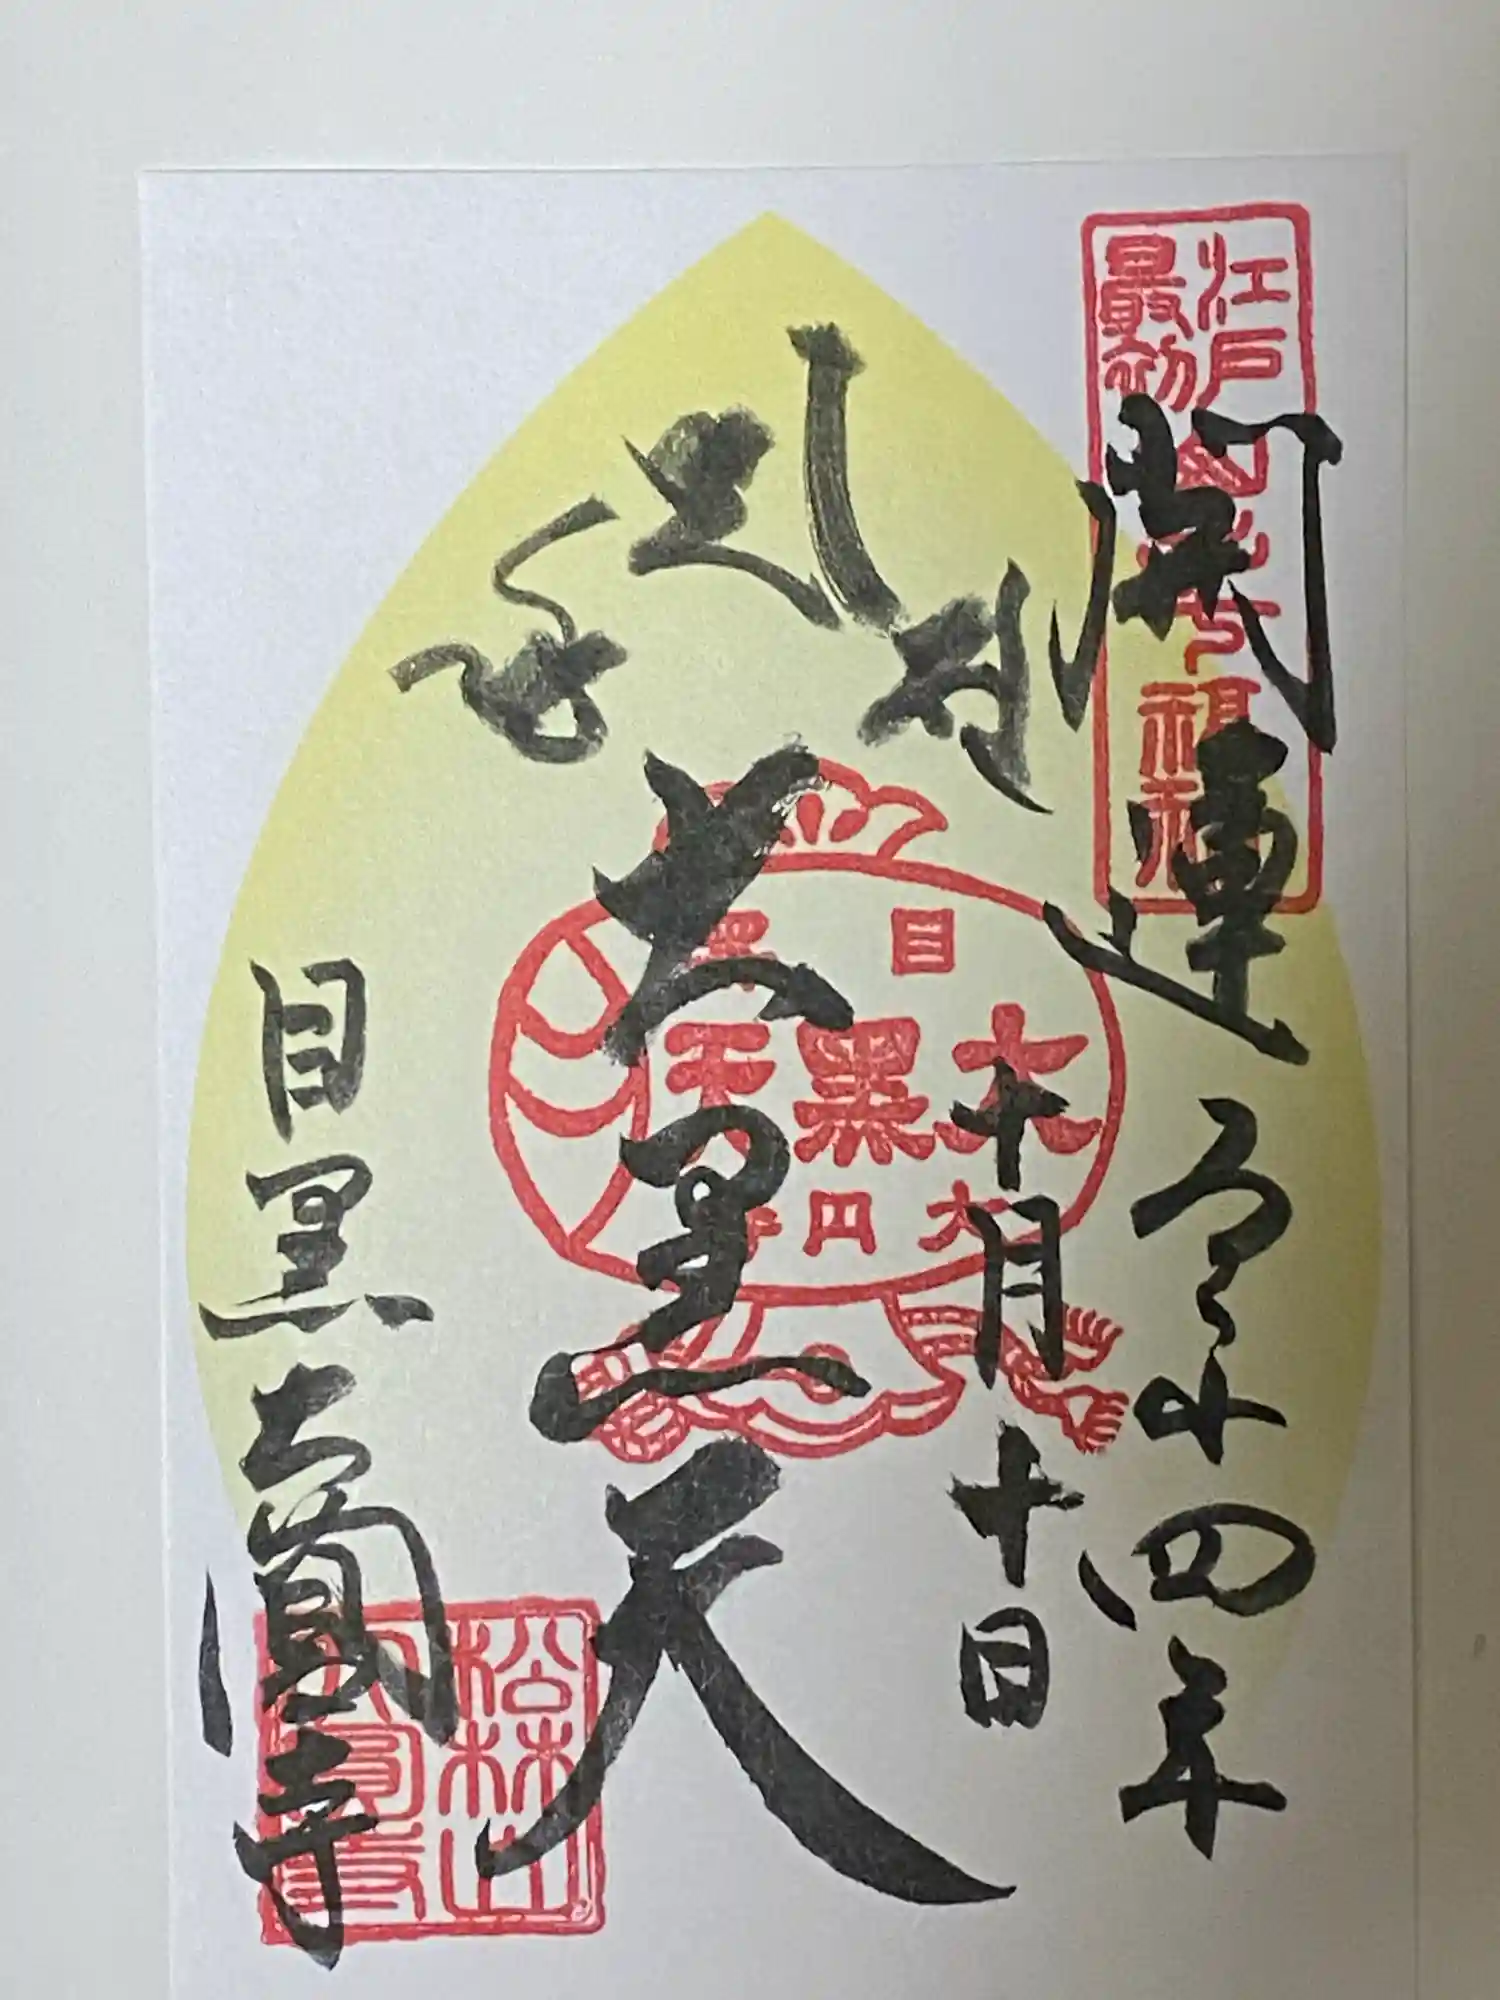 江戸
最初
山手
七福神
開運
令和四年
十月十日
大黒天
目黒
大黒天
大円寺
目黒大圓寺
松林山
大圓寺